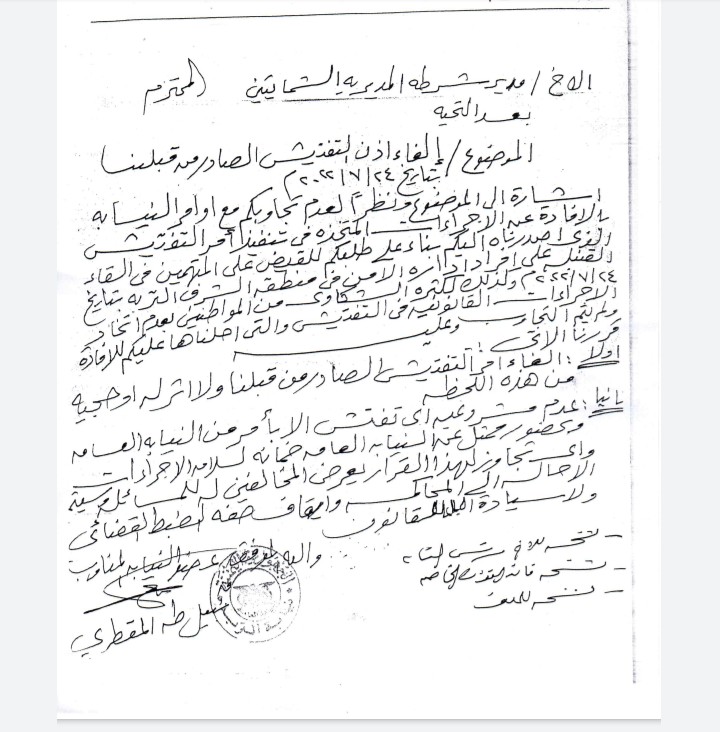 الاخ / مدير شرطه المديريه الشمايتين المحترم
بعد التحيه
الموضوع / إلغاء اذن التفتيش الصادر من قبلنا
بتاريخ ٢٤ / ٧ / ٢٠٢٢م
اشارة الى الموضوع ونظراً لعدم تجاوبكم مع اوامر النيابه
بالافادة عن الاجراءات المتخذه في تنفيذ أمر التفتيش
الذي اصدرناه اليكم بناء على طلبكم للقبض على المتهمين في القاء
القنبل على افراد ادارة الامن في منطقه الشرف التربه بتاريخ
٢٤ / ٧ / ٢٠٢٢م وكذلك لكثره الشكاوى من المواطنين بعدم اتخاذ
الاجراءات القانونيه في التفتيش والتي احلناها عليكم للافادة
ولم يتم التجاوب وعليه
قررنا الاتي :
اولاً : الغاء امر التفتيش الصادر من قبلنا ولا اثر له او حجيه
من هذه اللحظه
ثانيا : عدم مشروعيه اى تفتش الا بأمر من النيابه العامه
وبحضور ممثل عن النيابه العامه ضمانه لسلامه الاجراءات
واي تجاوز لهذا القرار يعرض المخالفين له للمسائله
الاحاله الى المحاكمه وايقاف صفه الضبط القضائي
ولا سيادة الا للقانون
والله الموفق عضو النيابه المناوب
طه المقطري
- نسخه للاخ
- نسخه
- نسخه للملف